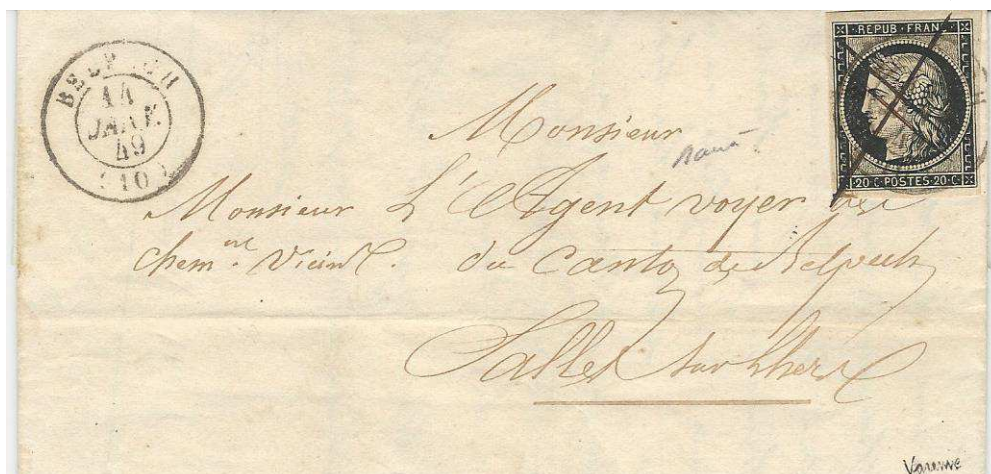 BELPECH
14
JANV.
49
(10)
REPUB·FRANC
20·C·POSTES·20·C
Monsieur
Monsieur L'Agent voyer des
chem.ns Vicin.x du Canton de Belpech
Salles sur Lhers